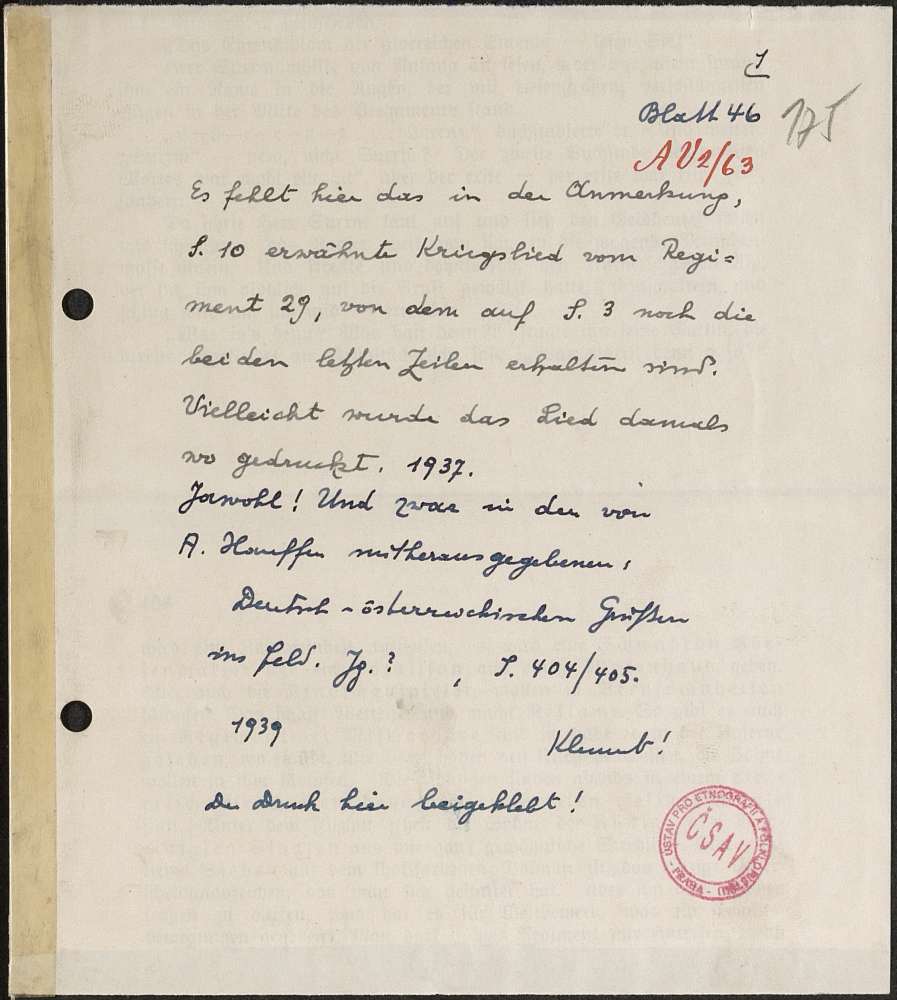 1
Blatt 46
175
A V2/63
Es fehlt hier das in der Anmerkung,
S. 10 erwähnte Kriegslied vom Regi=
ment 29, von dem auf S. 3 noch die
beiden letzten Zeilen erhalten sind.
Vielleicht wurde das Lied damals
wo gedruckt. 1937.
Jawohl! Und zwar in den von
A. Hauffen mitherausgegebenen:
Deutsch-österreichischen Grüßen
ins Feld. Jg. ? , S. 404/405.
1939
Klaunt!
Der Druck hier beigeklebt!
ÚSTAV PRO ETNOGRAFII A FOLKLORISTIKU
ČSAV
PRAHA